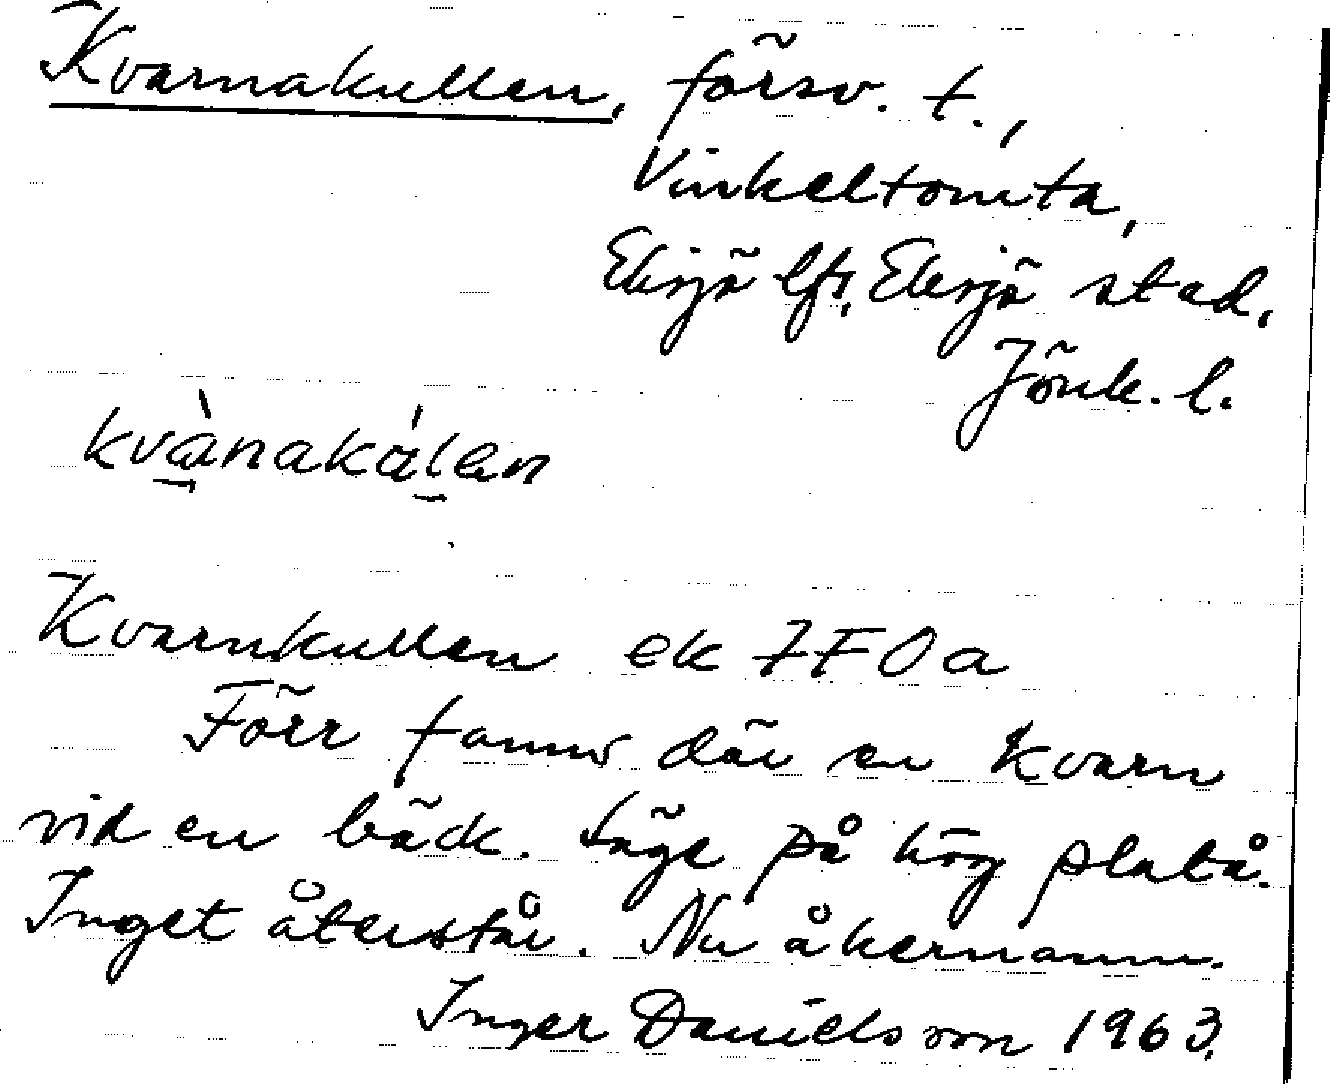 Kvarnakullen, försv. t.,
Vinkeltomta,
Eksjö lfs, Eksjö stad,
Jönk. l.
Kvarnkullen ek 7F0a
Förr fanns där en kvarn
vid en bäck. Läge på hög platå.
Inget återstår. Nu åkernamn.
Inger Danielsson 1963.